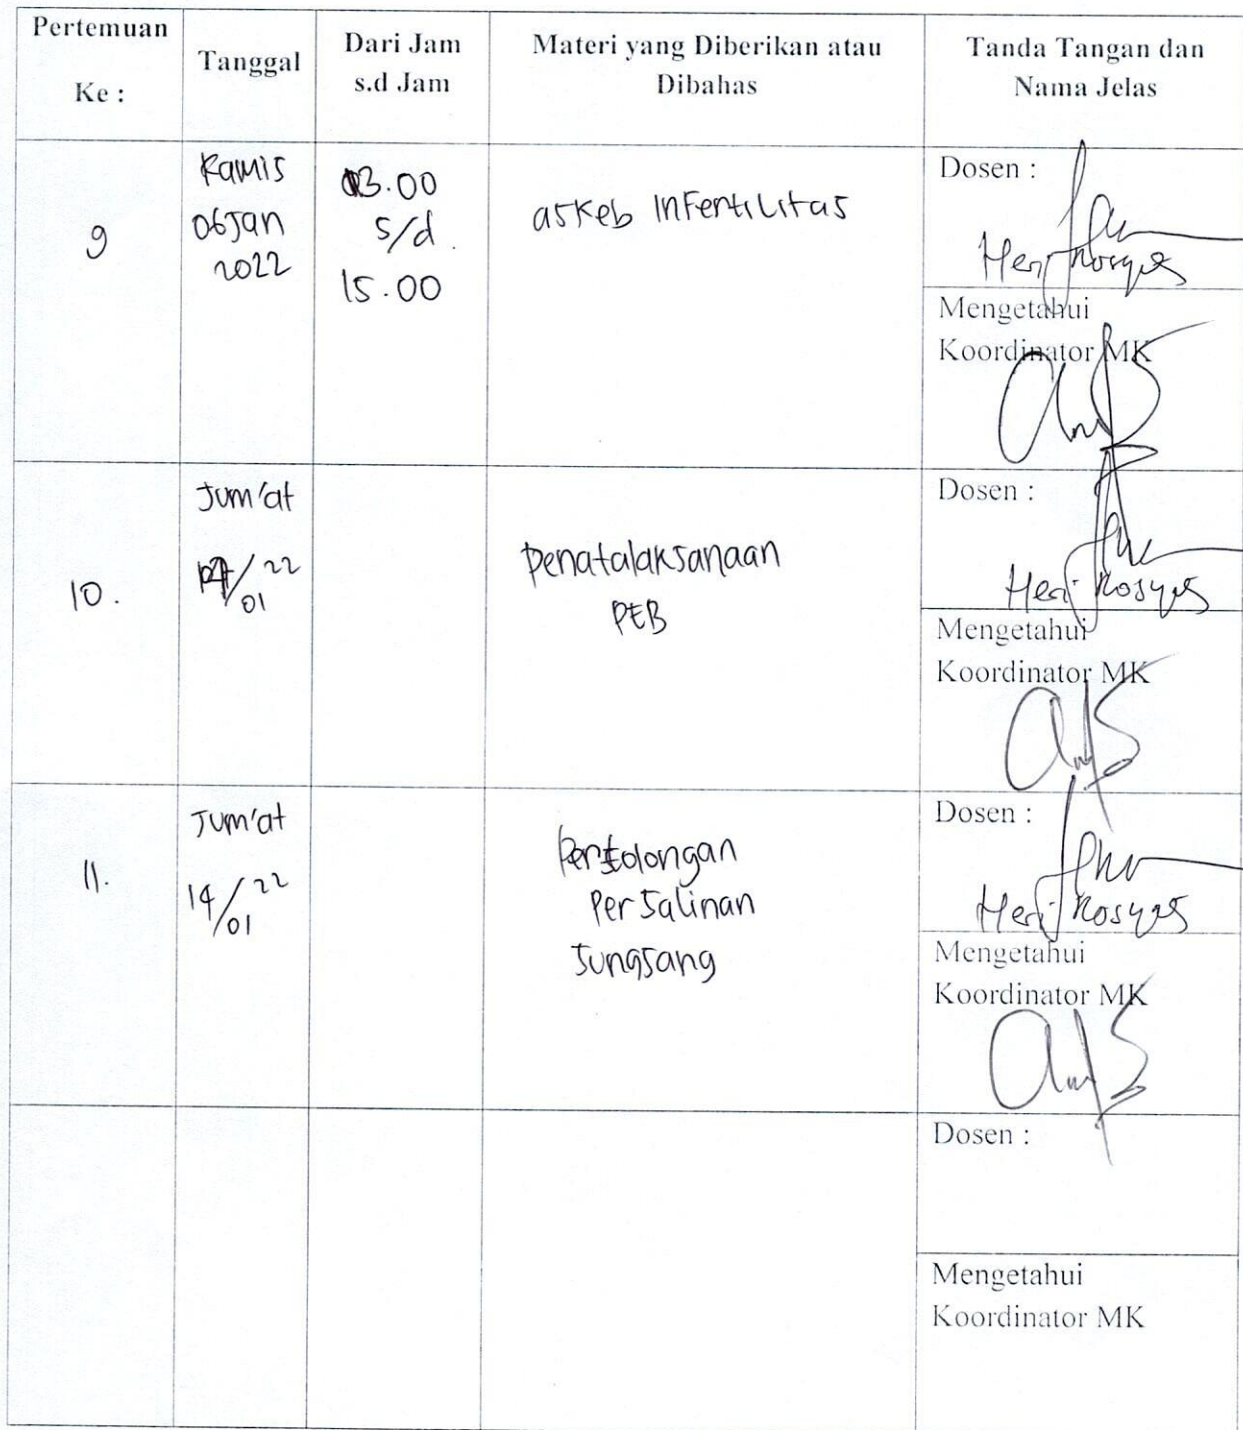 Pertemuan
Ke :
Tanggal
Dari Jam
s.d Jam
Materi yang Diberikan atau
Dibahas
Tanda Tangan dan
Nama Jelas
9
Kamis
06 Jan
2022
13.00
s/d.
15.00
askeb Infertilitas
Dosen :
Heri Rosyati
Mengetahui
Koordinator MK
10.
Jum'at
/22
01
Penatalaksanaan
PEB
Dosen :
Heri Rosyati
Mengetahui
Koordinator MK
11.
Jum'at
14/22
01
Pertolongan
Persalinan
Sungsang
Dosen :
Heri Rosyati
Mengetahui
Koordinator MK
Dosen :
Mengetahui
Koordinator MK